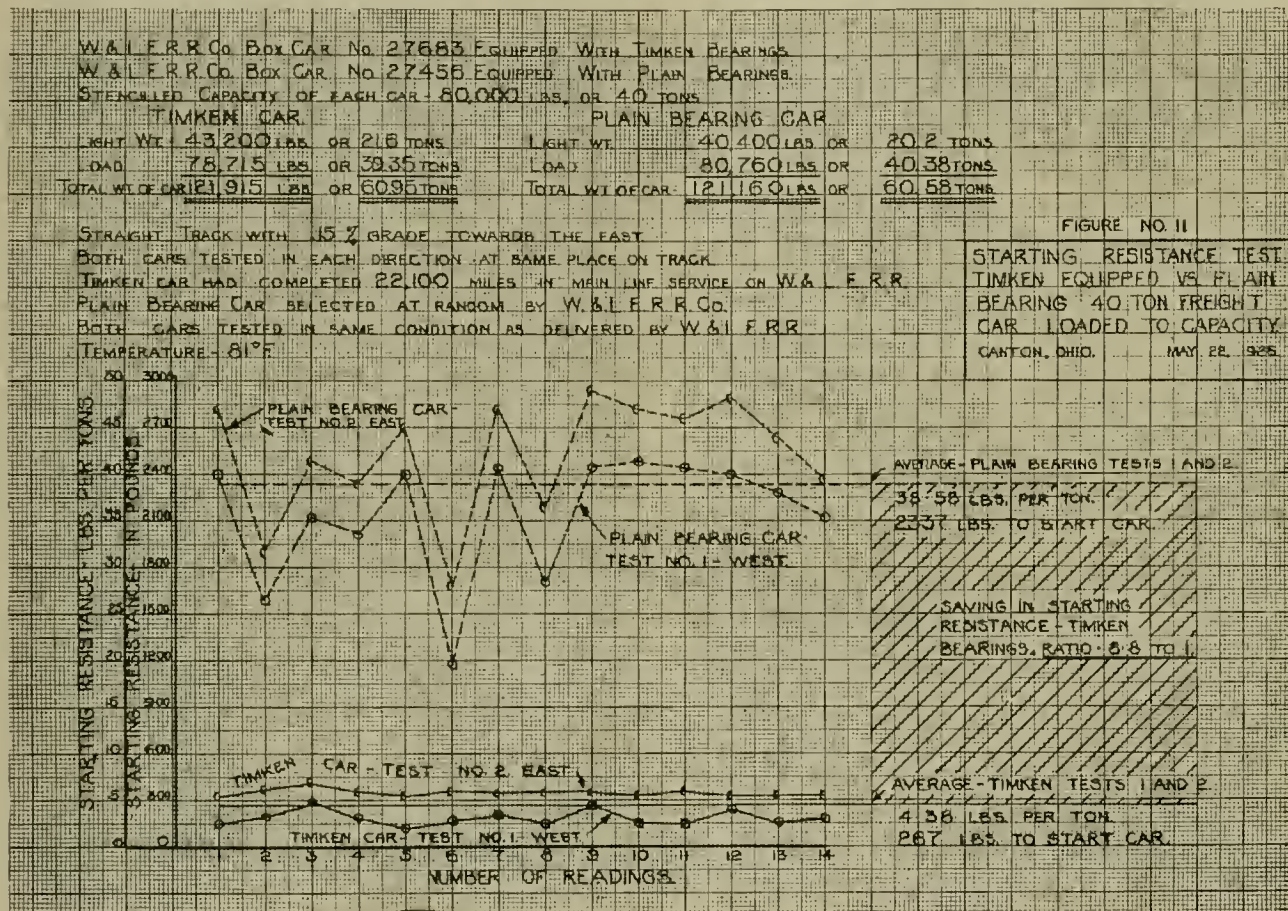 W. & L. E. R. R. Co. BOX CAR No. 27683 EQUIPPED WITH TIMKEN BEARINGS
W. & L. E. R. R. Co. BOX CAR No. 27456 EQUIPPED WITH PLAIN BEARINGS.
STENCILLED CAPACITY OF EACH CAR - 80,000 LBS. OR 40 TONS
TIMKEN CAR
LIGHT WT. 43,200 LBS OR 21.6 TONS
LOAD 78,715 LBS OR 39.35 TONS
TOTAL WT. OF CAR 121,915 LBS OR 60.95 TONS
PLAIN BEARING CAR
LIGHT WT. 40,400 LBS OR 20.2 TONS
LOAD 80,760 LBS OR 40.38 TONS
TOTAL WT. OF CAR 121,160 LBS OR 60.58 TONS
STRAIGHT TRACK WITH .15 % GRADE TOWARDS THE EAST
BOTH CARS TESTED IN EACH DIRECTION AT SAME PLACE ON TRACK
TIMKEN CAR HAD COMPLETED 22,100 MILES IN MAIN LINE SERVICE ON W. & L. E. R. R.
PLAIN BEARING CAR SELECTED AT RANDOM BY W. & L. E. R. R. Co.
BOTH CARS TESTED IN SAME CONDITION AS DELIVERED BY W. & L. E. R. R.
TEMPERATURE - 81°F
FIGURE NO. 11
STARTING RESISTANCE TEST
TIMKEN EQUIPPED VS. PLAIN
BEARING 40 TON FREIGHT
CAR LOADED TO CAPACITY
CANTON, OHIO. MAY 22, 1925
STARTING RESISTANCE - LBS. PER TONS
STARTING RESISTANCE - IN POUNDS
50 3000
45 2700
40 2400
35 2100
30 1800
25 1500
20 1200
15 900
10 600
5 300
0 0
PLAIN BEARING CAR -
TEST NO. 2 EAST
PLAIN BEARING CAR -
TEST NO. 1 - WEST
AVERAGE - PLAIN BEARING TESTS 1 AND 2
38.58 LBS. PER TON.
2337 LBS. TO START CAR.
SAVING IN STARTING
RESISTANCE - TIMKEN
BEARINGS. RATIO - 8.8 TO 1.
TIMKEN CAR - TEST NO. 2 EAST
TIMKEN CAR - TEST NO. 1 - WEST
AVERAGE - TIMKEN TESTS 1 AND 2.
4.38 LBS. PER TON.
267 LBS. TO START CAR.
1 2 3 4 5 6 7 8 9 10 11 12 13 14
NUMBER OF READINGS